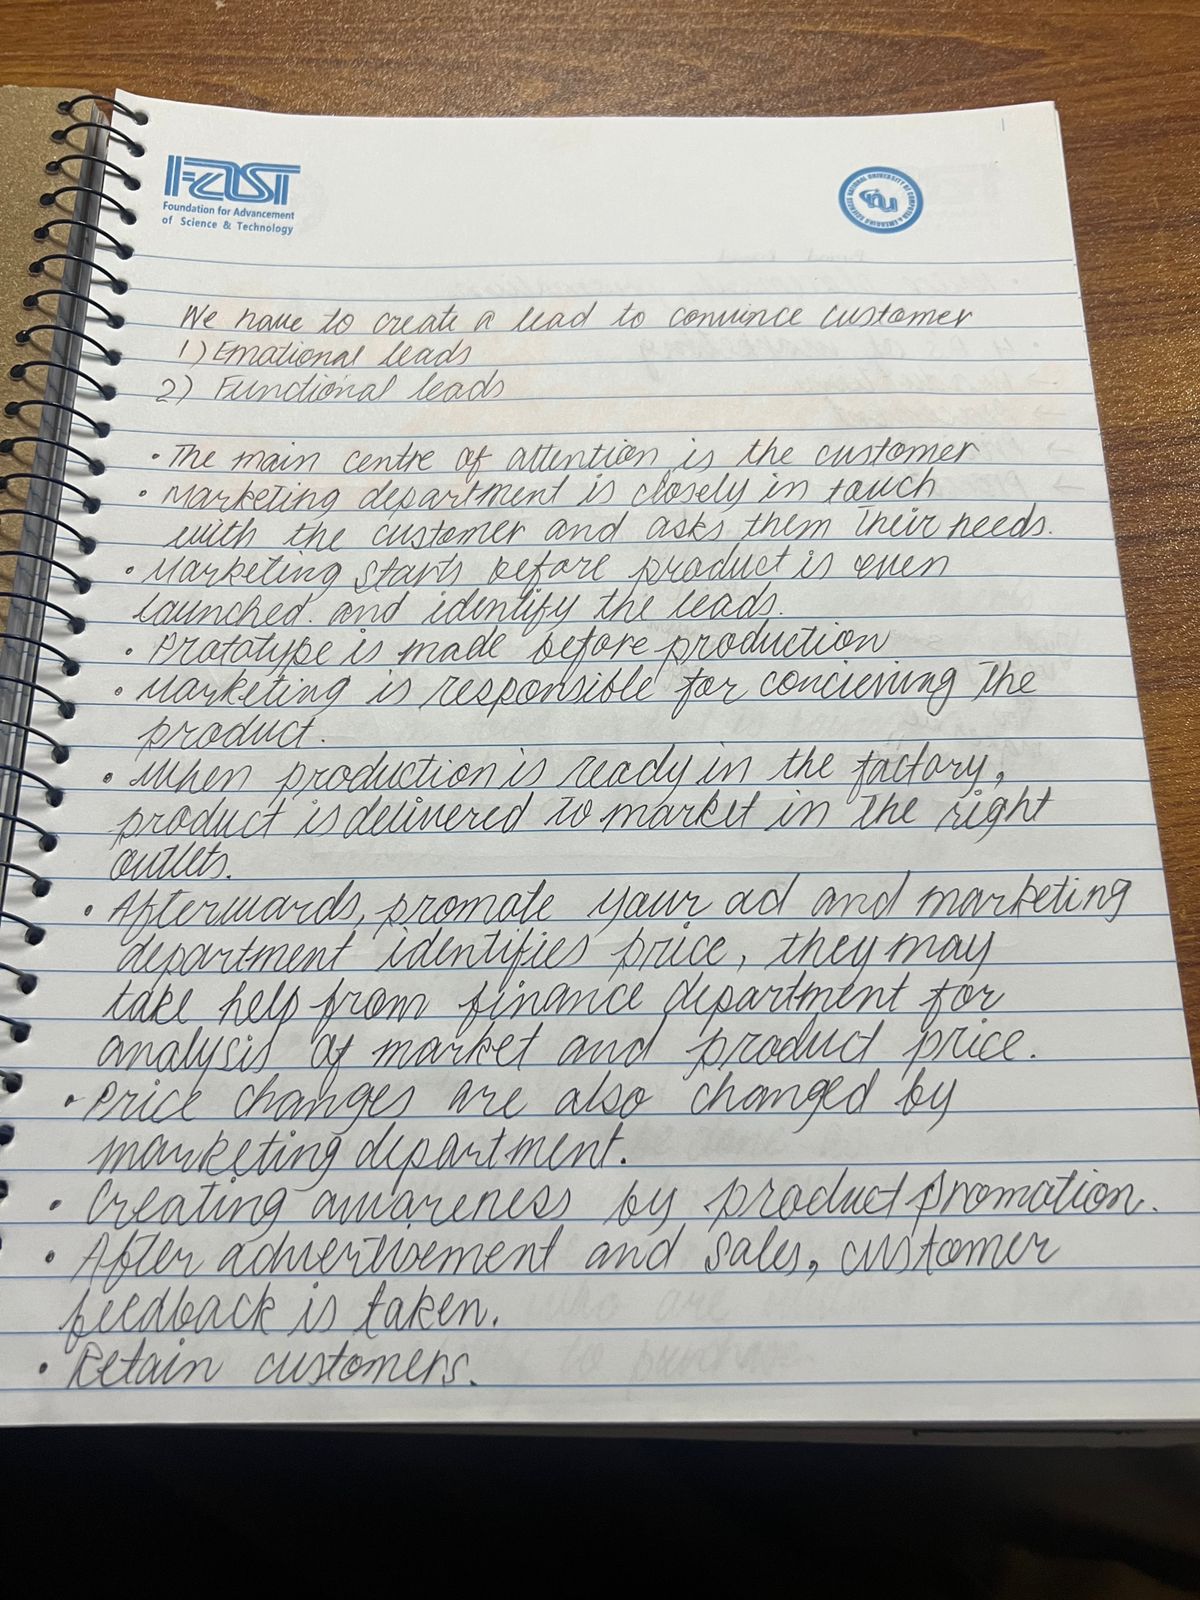 FAST
Foundation for Advancement
of Science & Technology
NATIONAL UNIVERSITY OF COMPUTER & EMERGING SCIENCES
nu
We have to create a lead to convince customer
1) Emotional leads
2) Functional leads
• The main centre of attention is the customer
• Marketing department is closely in touch
with the customer and asks them their needs.
• Marketing starts before product is even
launched. and identify the leads.
• Prototype is made before production
• Marketing is responsible for concieving the
product.
• When production is ready in the factory,
product is delivered to market in the right
outlets.
• Afterwards, promote your ad and marketing
department identifies price, they may
take help from finance department for
analysis of market and product price.
• Price changes are also changed by
marketing department.
• Creating awareness by product promotion.
• After advertisement and sales, customer
feedback is taken.
• Retain customers.